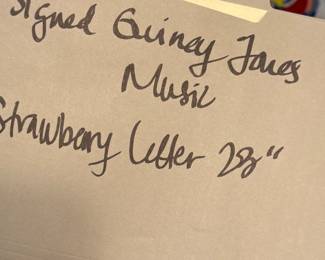 Signed Quincy Jones
Music
Strawberry Letter 23"